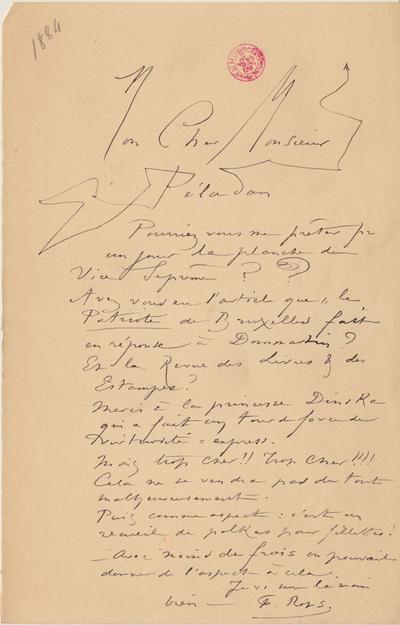 1884
Mon Cher Monsieur
Péladan
Pourriez vous me prêter pr
un jour la planche du
Vice Suprême ? ?
Avez vous eu l'article que "le
Patriote de Bruxelles fait
en réponse à Dommartin ?
Et la Revue des Livres & des
Estampes ?
Merci à la princesse Dinska
qui a fait un tour de force de
=
Mais trop cher !! Trop cher !!!!
Cela ne se vendra pas du tout
malheureusement.
Puis comme aspect : c'est un
recueil de polkas pour fillettes !
— Avec moins de frais on pouvait
donner de l'aspect à cela
Je vs serre la main
bien — F. Rops.